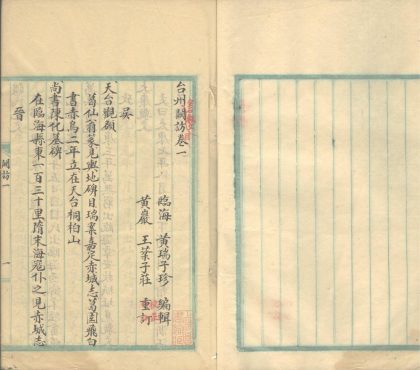 台州闕訪卷一
臨海 黃瑞子珍 編輯
黃巖 王棻子莊 重訂
吳
天台觀額
葛仙翁篆見輿地碑目瑞案嘉定赤城志葛園飛白
書赤烏二年立在天台桐柏山
尚書陳化墓碑
在臨海縣東一百三十里隋末海冦仆之見赤城志
晉
闕訪一
一